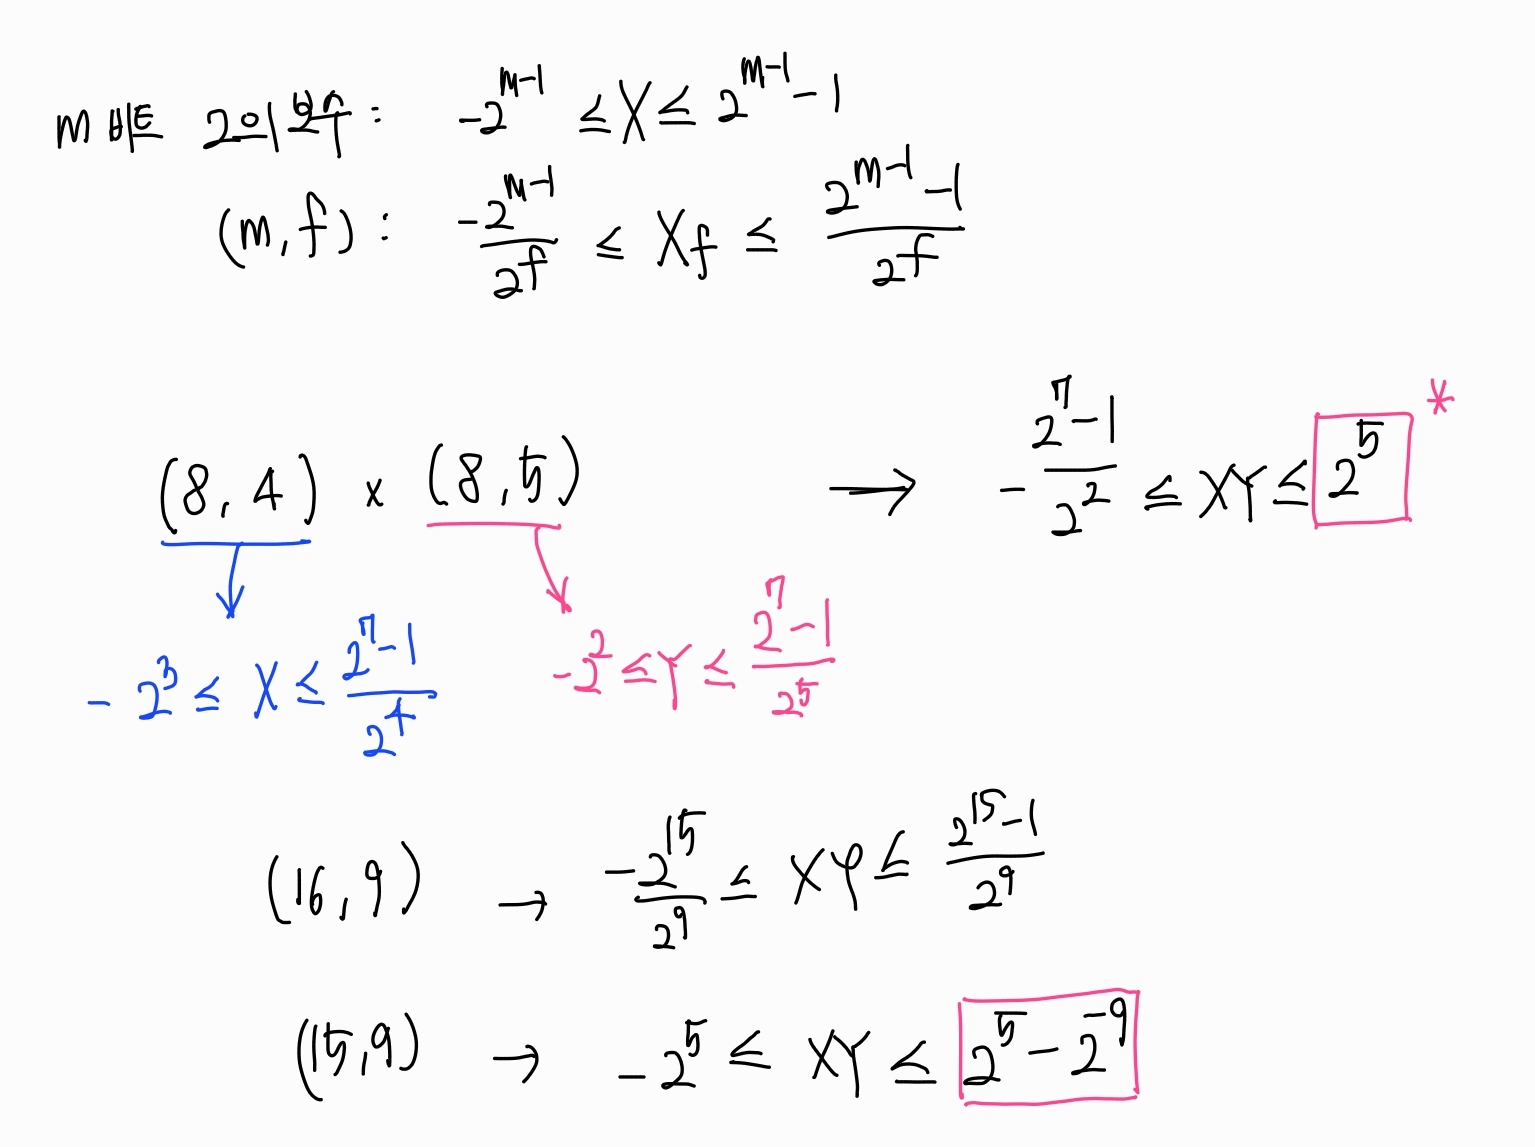 m비트 2의 보수: -2^{m-1} ≤ X ≤ 2^{m-1} - 1
(m, f): \frac{-2^{m-1}}{2^f} ≤ X_f ≤ \frac{2^{m-1} - 1}{2^f}
(8, 4) × (8, 5) → -\frac{2^7 - 1}{2^2} ≤ XY ≤ 2^5 *
-2^3 ≤ X ≤ \frac{2^7 - 1}{2^4}
-2^2 ≤ Y ≤ \frac{2^7 - 1}{2^5}
(16, 9) → \frac{-2^{15}}{2^9} ≤ XY ≤ \frac{2^{15} - 1}{2^9}
(15, 9) → -2^5 ≤ XY ≤ 2^5 - 2^{-9}